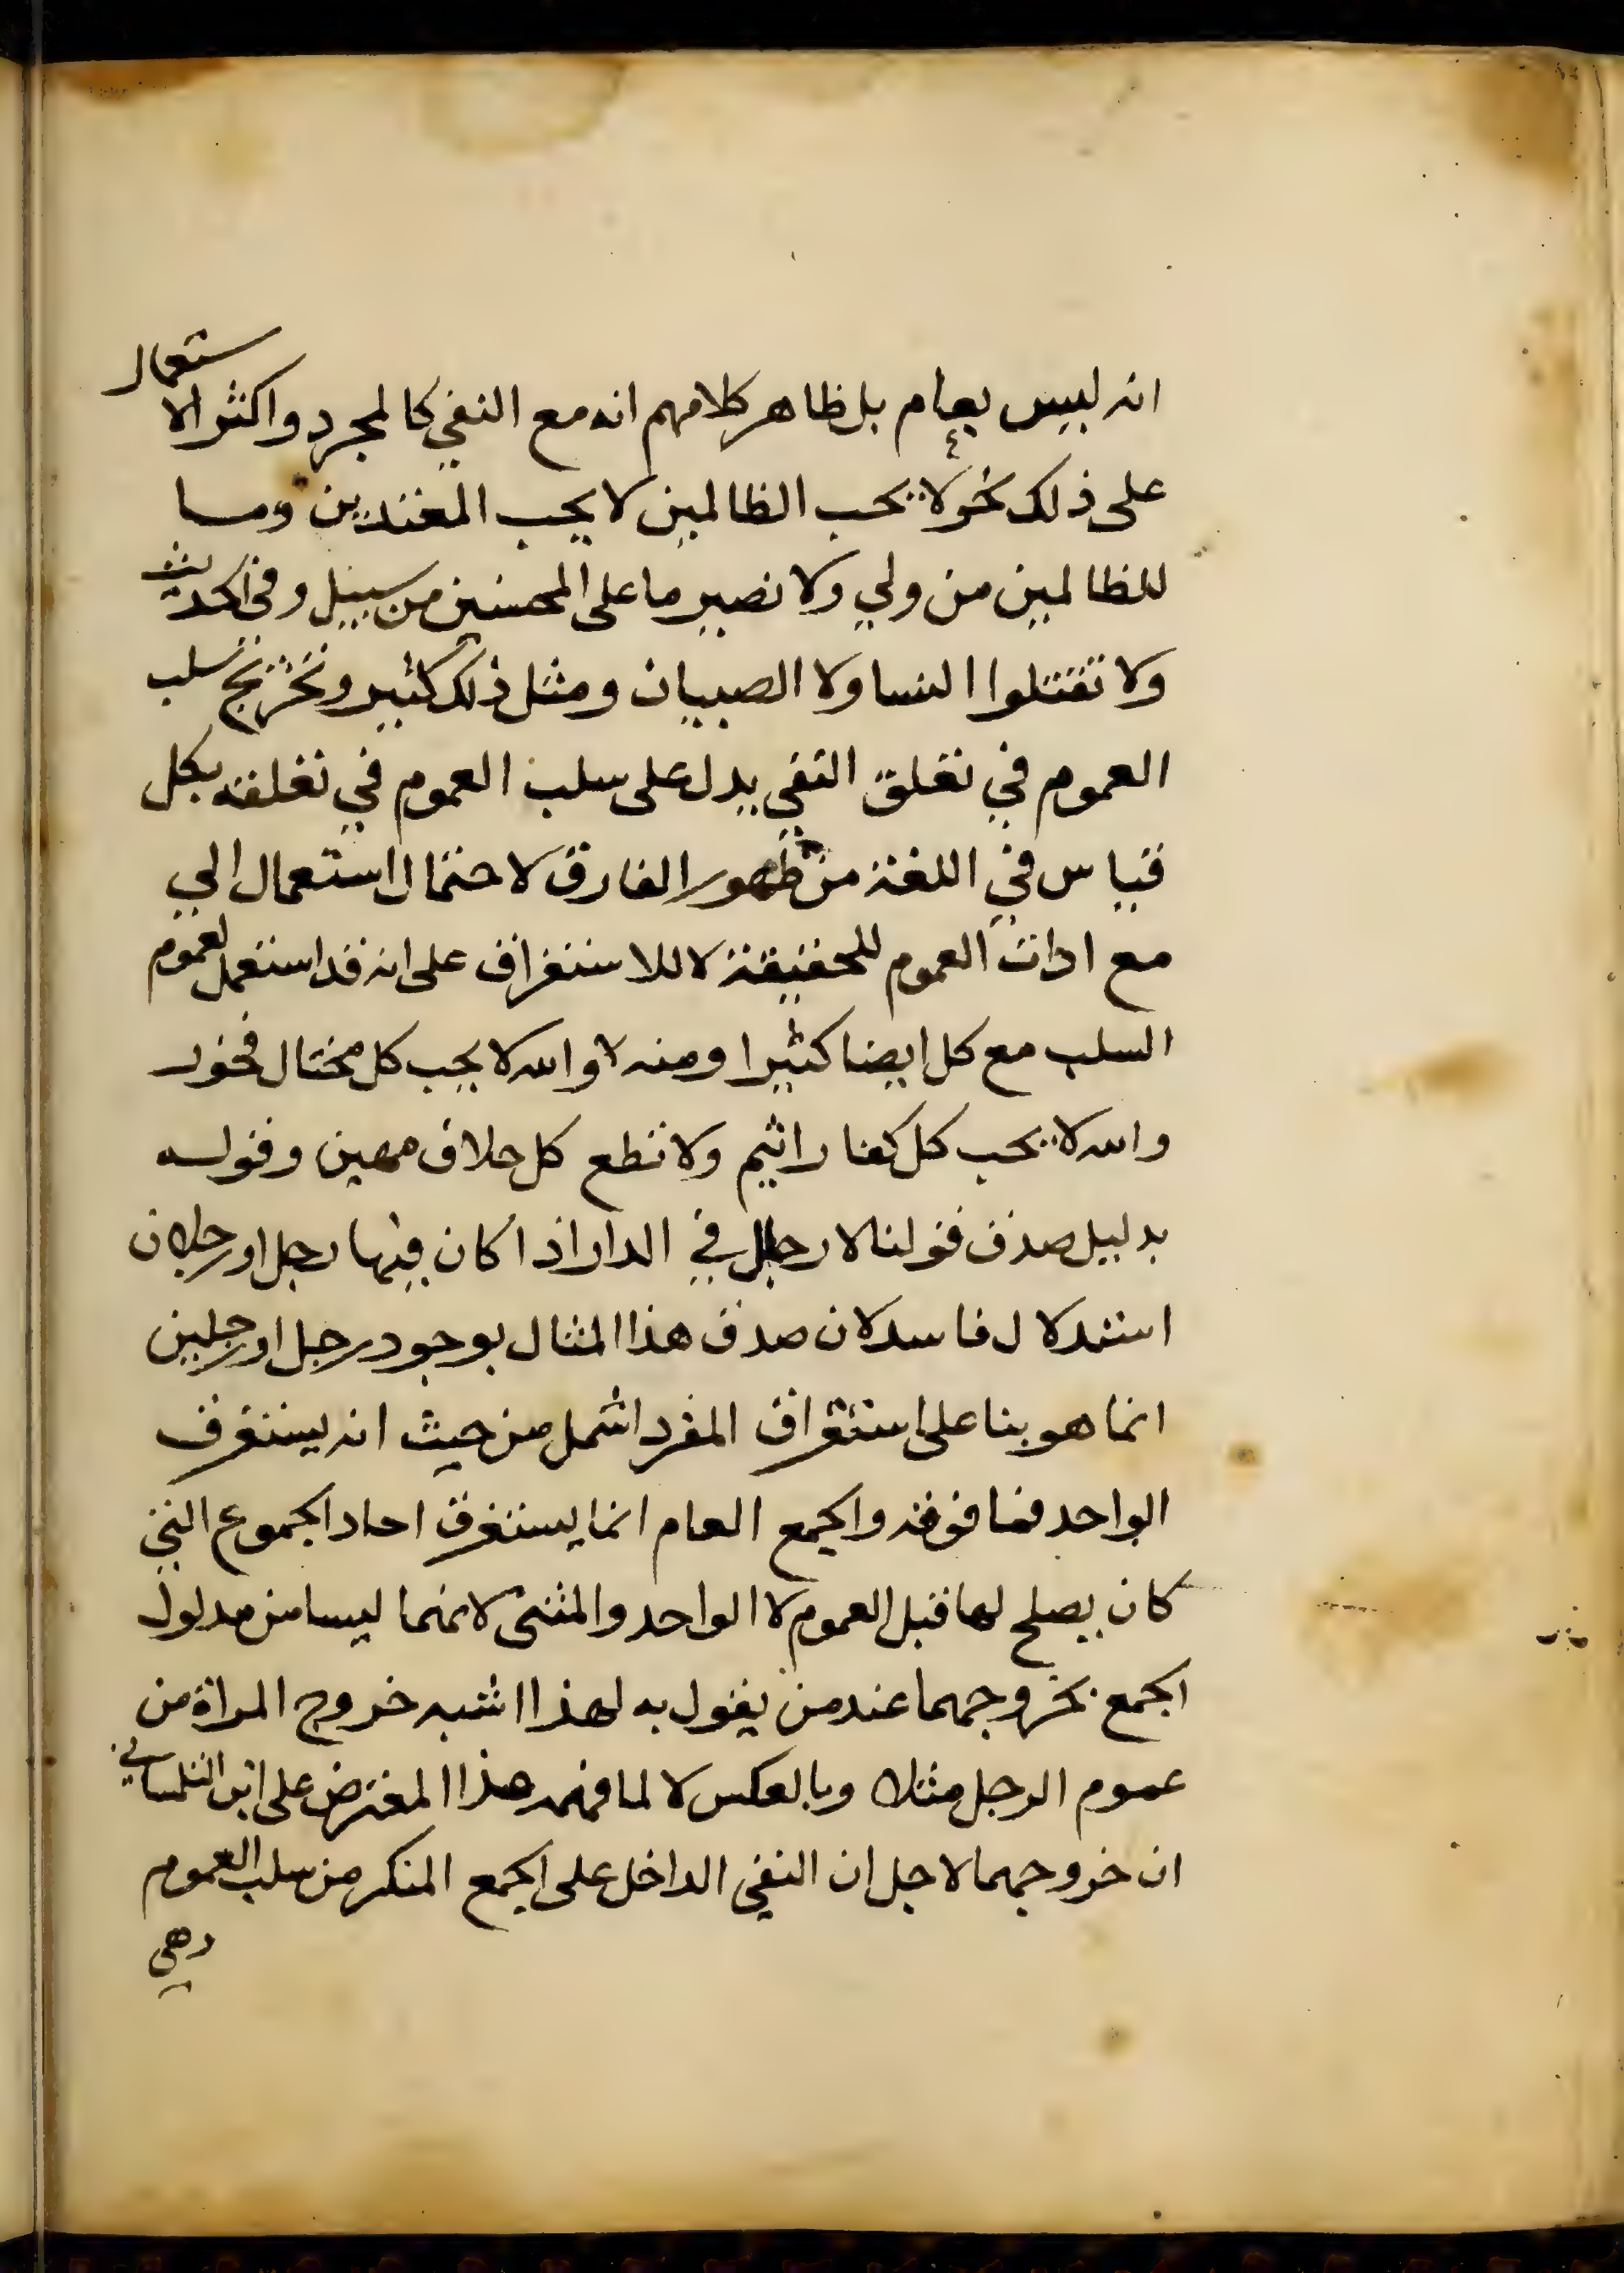 انه ليس بعام بل ظاهر كلامهم انه مع النفي كالمجرد واكثر الاستعمال
على ذلك نحو لا يحب الظالمين لا يحب المعتدين وما
للظالمين من ولي ولا نصير ما على المحسنين من سبيل وفي الحديث
ولا تقتلوا النسا ولا الصبيان ومثل ذلك كثير وتخريج سلب
العموم في تعلق النفي يدل على سلب العموم في تعلقه بكل
قياس في اللغة من ظهور الفارق لاحتمال استعمال الي
مع ادات العموم للحقيقة لا للاستغراق على انه قد استعمل لعموم
السلب مع كل ايضا كثيرا ومنه لا والله لا يحب كل مختال فخور
والله لا يحب كل كفار اثيم ولا تطع كل حلاف مهين وقوله
بدليل صدق قولنا لا رجال في الدار اذا كان فيها رجل او رجلان
استدلال فاسد لان صدق هذا المثال بوجود رجل او رجلين
انما هو بنا على استغراق المفرد اشمل من حيث انه يستغرق
الواحد فما فوقه والجمع العام انما يستغرق احاد الجموع التي
كان يصلح لها قبل العموم لا الواحد والمثنى لانهما ليسا من مدلول
الجمع بخروجهما عند من يقول به لهذا اشبه خروج المراة من
عموم الرجل مثلا وبالعكس لا لما فهمه هذا المعترض على ابن التلمساني
ان خروجهما لاجل ان النفي الداخل على الجمع المنكر من سلب العموم
وهي